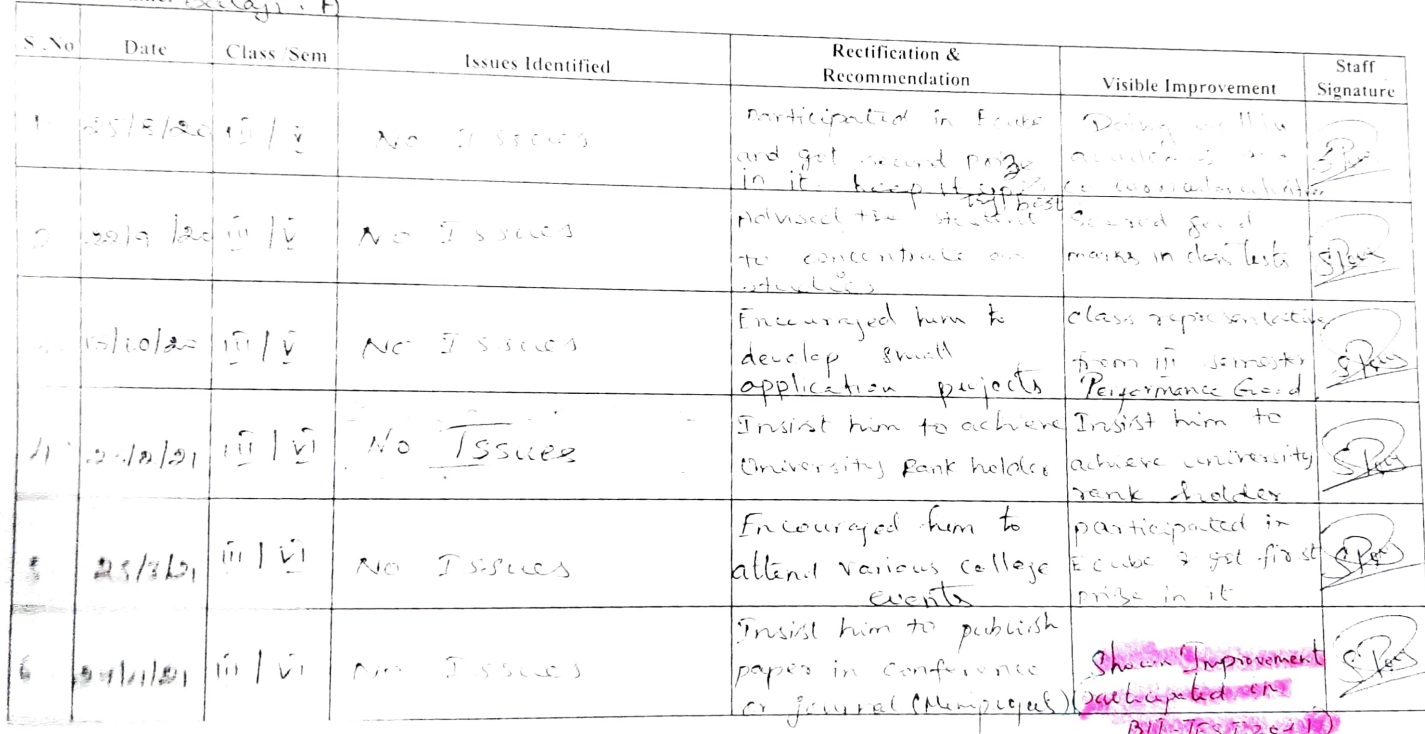 Balaji . A
S.No Date Class /Sem Issues Identified Rectification & Recommendation Visible Improvement Staff Signature
1 25/8/20 III / V No Issues
participated in Ecube
and got second prize
in it. keep it up
Doing well in
/20 III / V No Issues
Advised the student
to concentrate on
studies
Scored good
marks in class tests
/10/20 III / V No Issues
Encouraged him to
develop small
application projects
class representative
from III semester
Performance Good
4 /21 III / VI No Issues
Insist him to achieve
University Rank holder
Insist him to
achieve university
rank holder
5 25/3/21 III / VI No Issues
Encouraged him to
attend various college
events
participated in
Ecube & got first
prize in it
6 III / VI No Issues
Insist him to publish
paper in conference
or journal (Miniproject)
Shown Improvement
(participated in